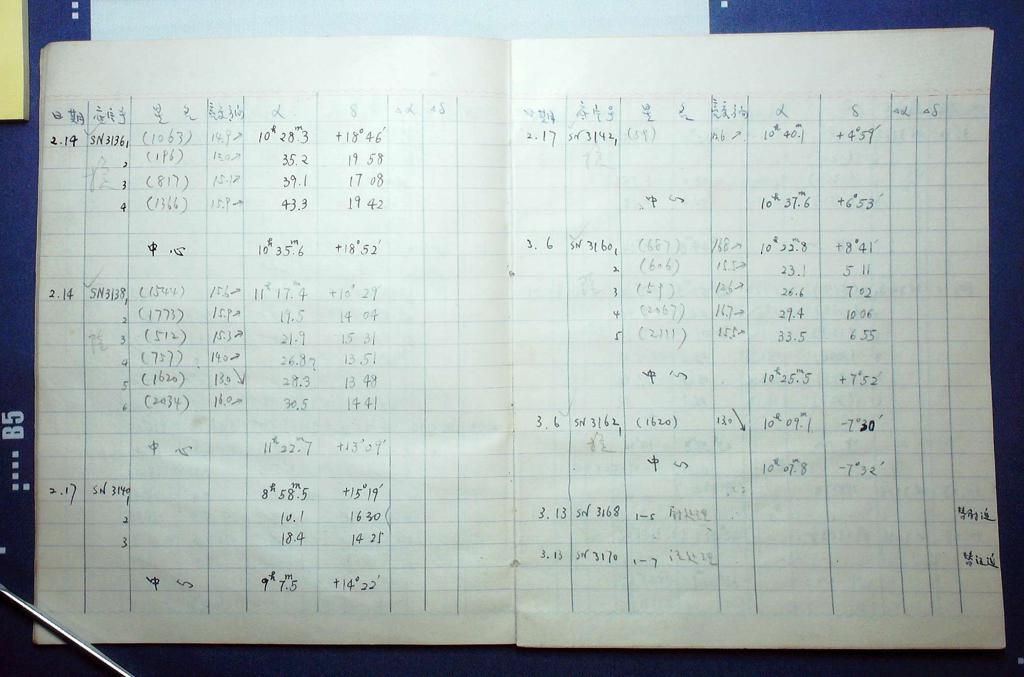 日期 底片号 星名 亮度 α δ Δα Δδ
2.14 SN3136,1 (1063) 14.9↗ 10ʰ28ᵐ.3 +18°46′
2 (196) 13.0↗ 35.2 19 58
3 (817) 15.1↗ 39.1 17 08
4 (1366) 15.9↗ 43.3 19 42
中心 10ʰ35ᵐ.6 +18°52′
2.14 SN3138,1 (1544) 15.6↗ 11ʰ17ᵐ.4 +10°29′
2 (1773) 15.9↗ 19.5 14 04
3 (512) 15.3↗ 21.9 15 31
4 (757) 14.0↗ 26.8? 13.51
5 (1620) 13.0↘ 28.3 13 48
6 (2034) 16.0↗ 30.5 14 41
中心 11ʰ22ᵐ.7 +13°09′
2.17 SN3140,1 8ʰ58ᵐ.5 +15°19′
2 10.1 16 30
3 18.4 14 25
中心 9ʰ7ᵐ.5 +14°22′
日期 底片号 星名 亮度 α δ Δα Δδ
2.17 SN3142,1 (59) 12.6↗ 10ʰ40ᵐ.1 +4°59′
中心 10ʰ37ᵐ.6 +6°53′
3.6 SN3160,1 (687) 16.8↗ 10ʰ22ᵐ.8 +8°41′
2 (606) 15.5↗ 23.1 5 11
3 (59) 12.6↗ 26.6 7 02
4 (2067) 16.7↗ 29.4 10 06
5 (2111) 15.5↗ 33.5 6 55
中心 10ʰ25ᵐ.5 +7°52′
3.6 SN3162,1 (1620) 13.0↘ 10ʰ09ᵐ.1 -7°30′
中心 10ʰ07ᵐ.8 -7°32′
3.13 SN3168 1-5
3.13 SN3170 1-7
B5